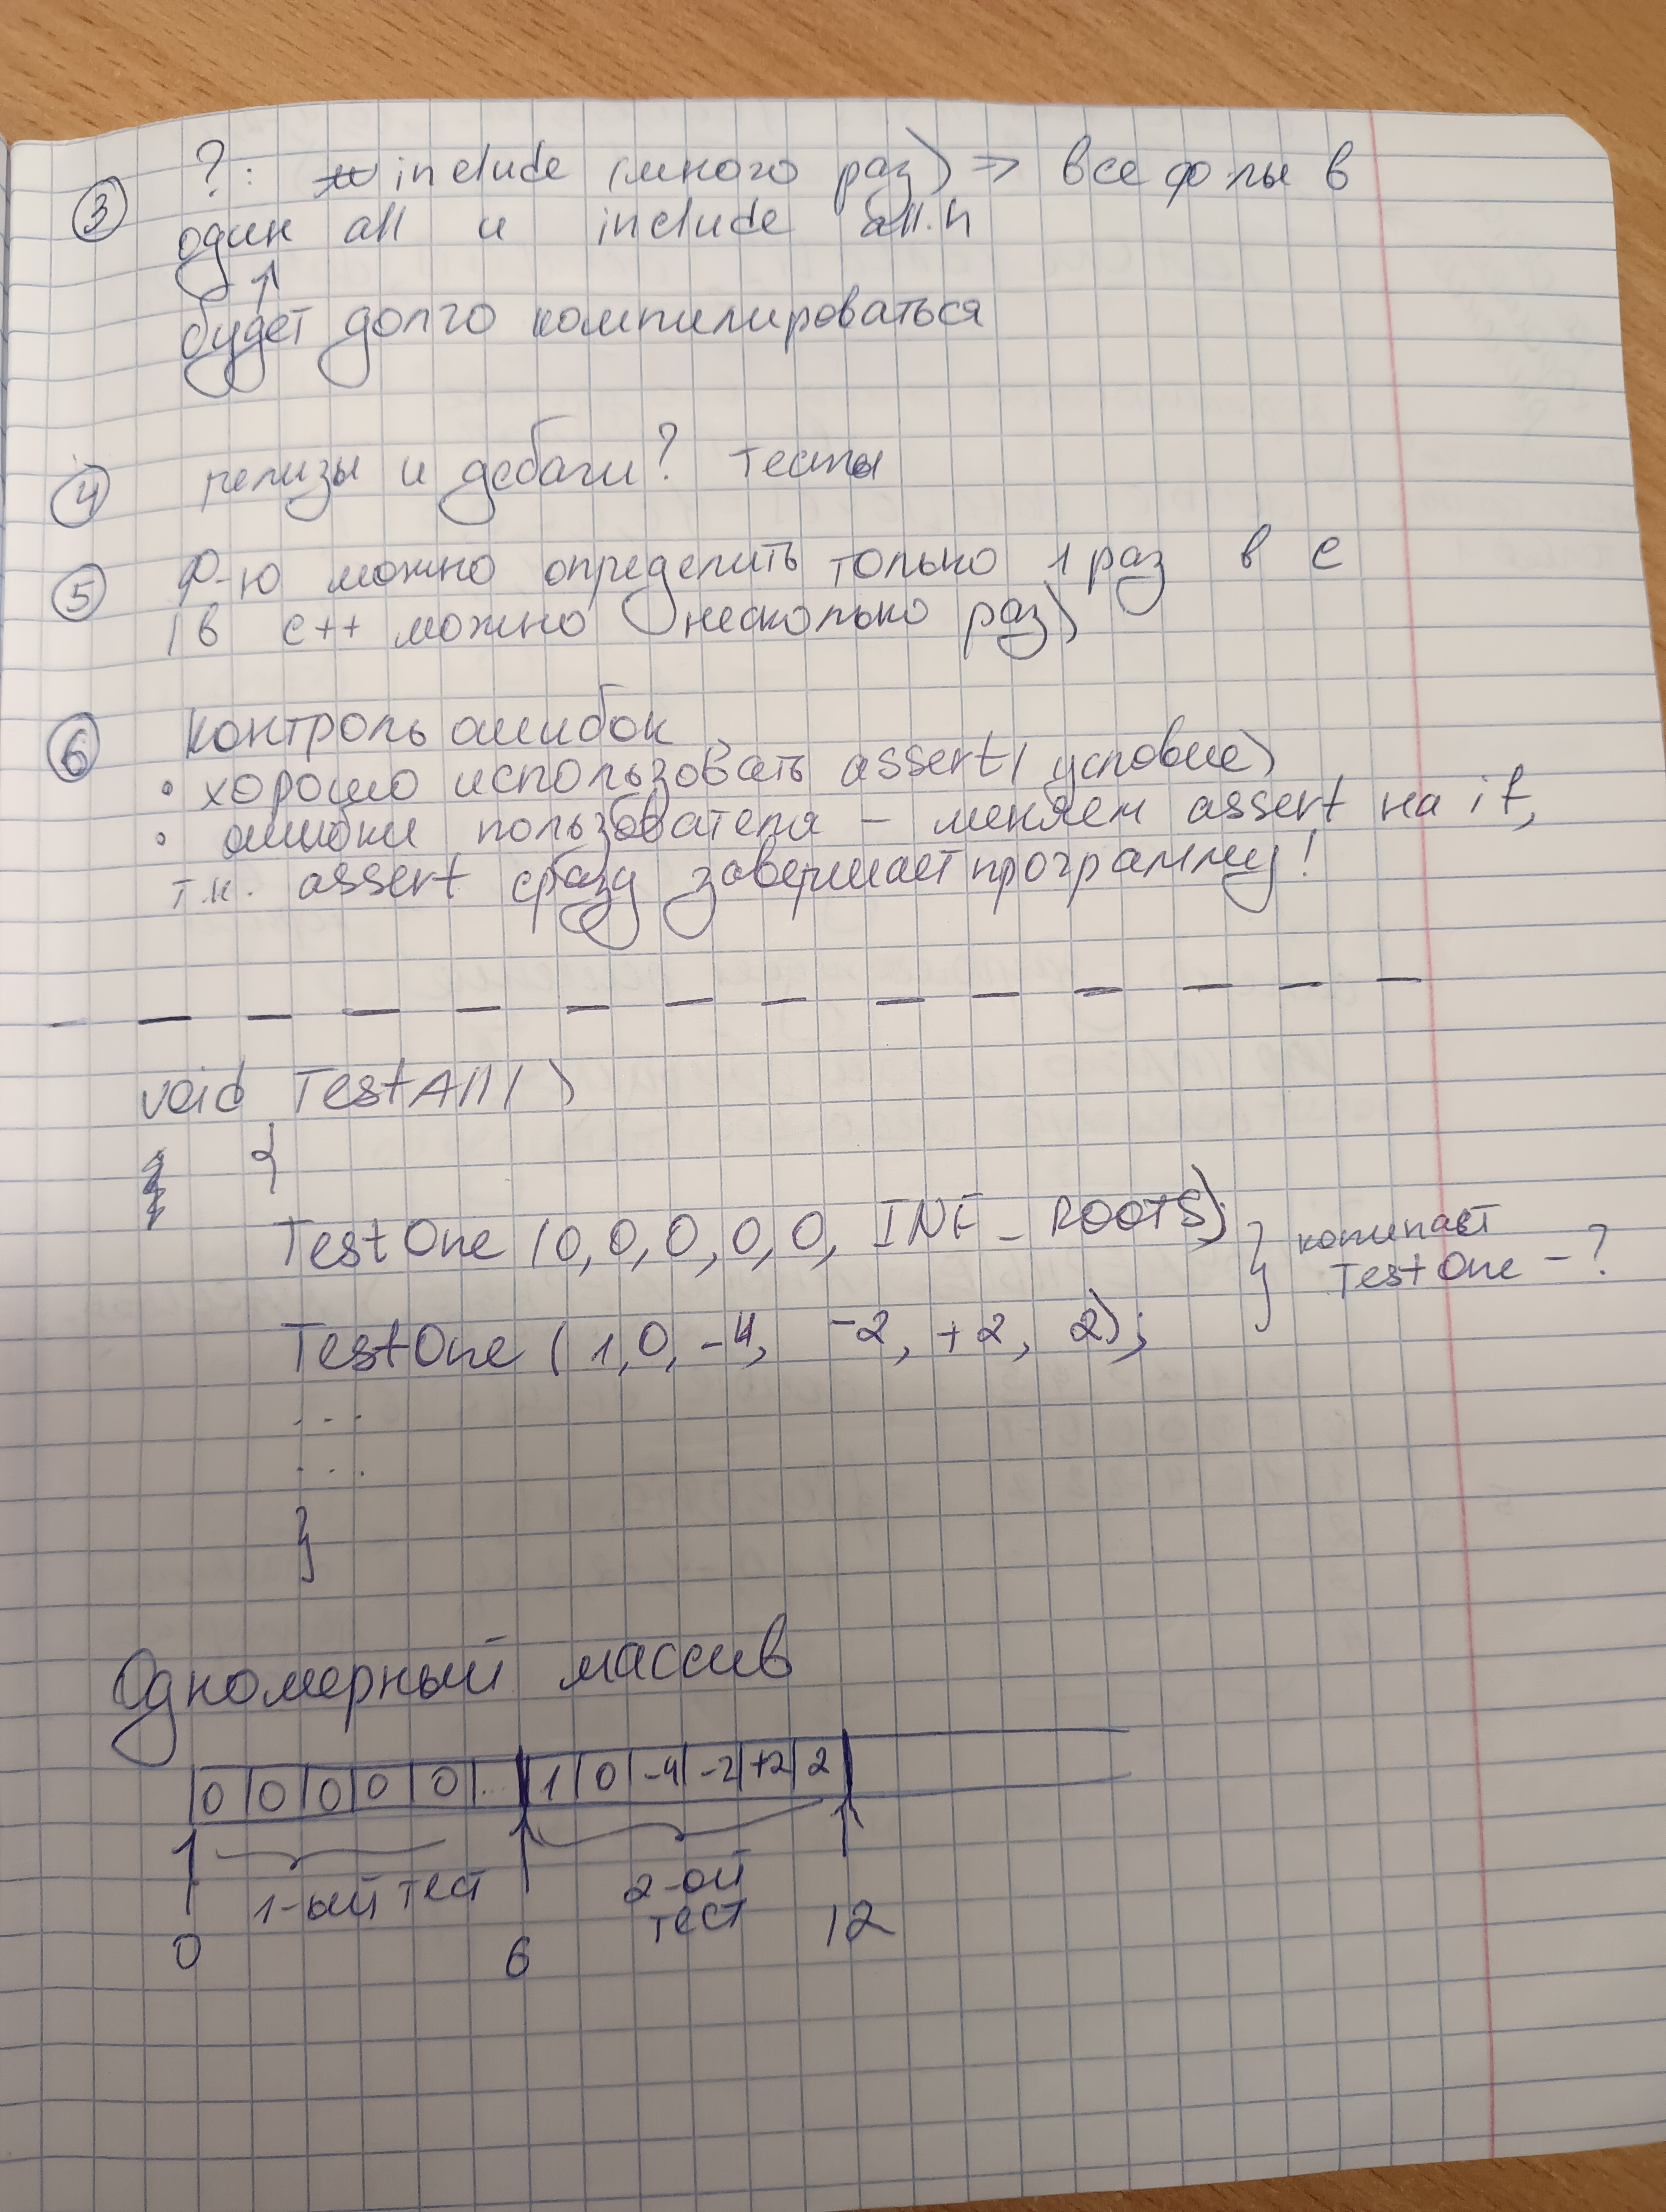 ③ ?: include (много раз) => все ф-лы в
один all и include all.h
↑
будет долго компилироваться
④ релизы и дебаги? тесты
⑤ Ф-ю можно определить только 1 раз в C
(в C++ можно несколько раз)
⑥ контроль ошибок
• хорошо использовать assert(условие)
• ошибки пользователя – меняем assert на if,
т.к. assert сразу завершает программу!
void TestAll()
{
TestOne (0, 0, 0, 0, 0, INF_ROOTS);
} копипаст
TestOne - ?
TestOne (1, 0, -4, -2, +2, 2);
...
...
}
Одномерный массив
0 | 0 | 0 | 0 | 0 | ... | 1 | 0 | -4 | -2 | +2 | 2
1-ый тест 2-ой
тест
0 6 12